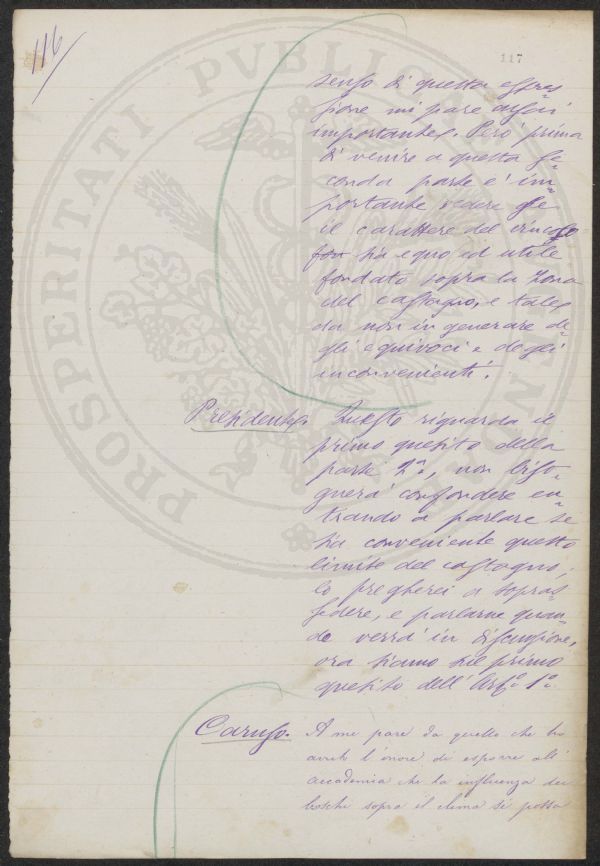 116
117
PROSPERITATI PUBLICAE
senso di questa espres-
sione mi pare assai
importante. Però prima
di venire a questa se-
conda parte è im-
portante vedere se
il carattere del vincolo
sia equo ed utile
fondato sopra la zona
del castagno, e tale
da non ingenerare de-
gli equivoci e degli
inconvenienti.
Presidente. Questo riguarda il
primo quesito della
parte 2ª, non biso-
gnerà confondere en-
trando a parlare se
sia conveniente questo
limite del castagno,
lo pregherei a sopras-
sedere, e parlarne quan-
do verrà in discussione,
ora siamo sul primo
quesito dell'Artº 1º.
Caruso. A me pare da quello che ho
avuto l'onore di esporre all'
Accademia che la influenza dei
boschi sopra il clima si possa